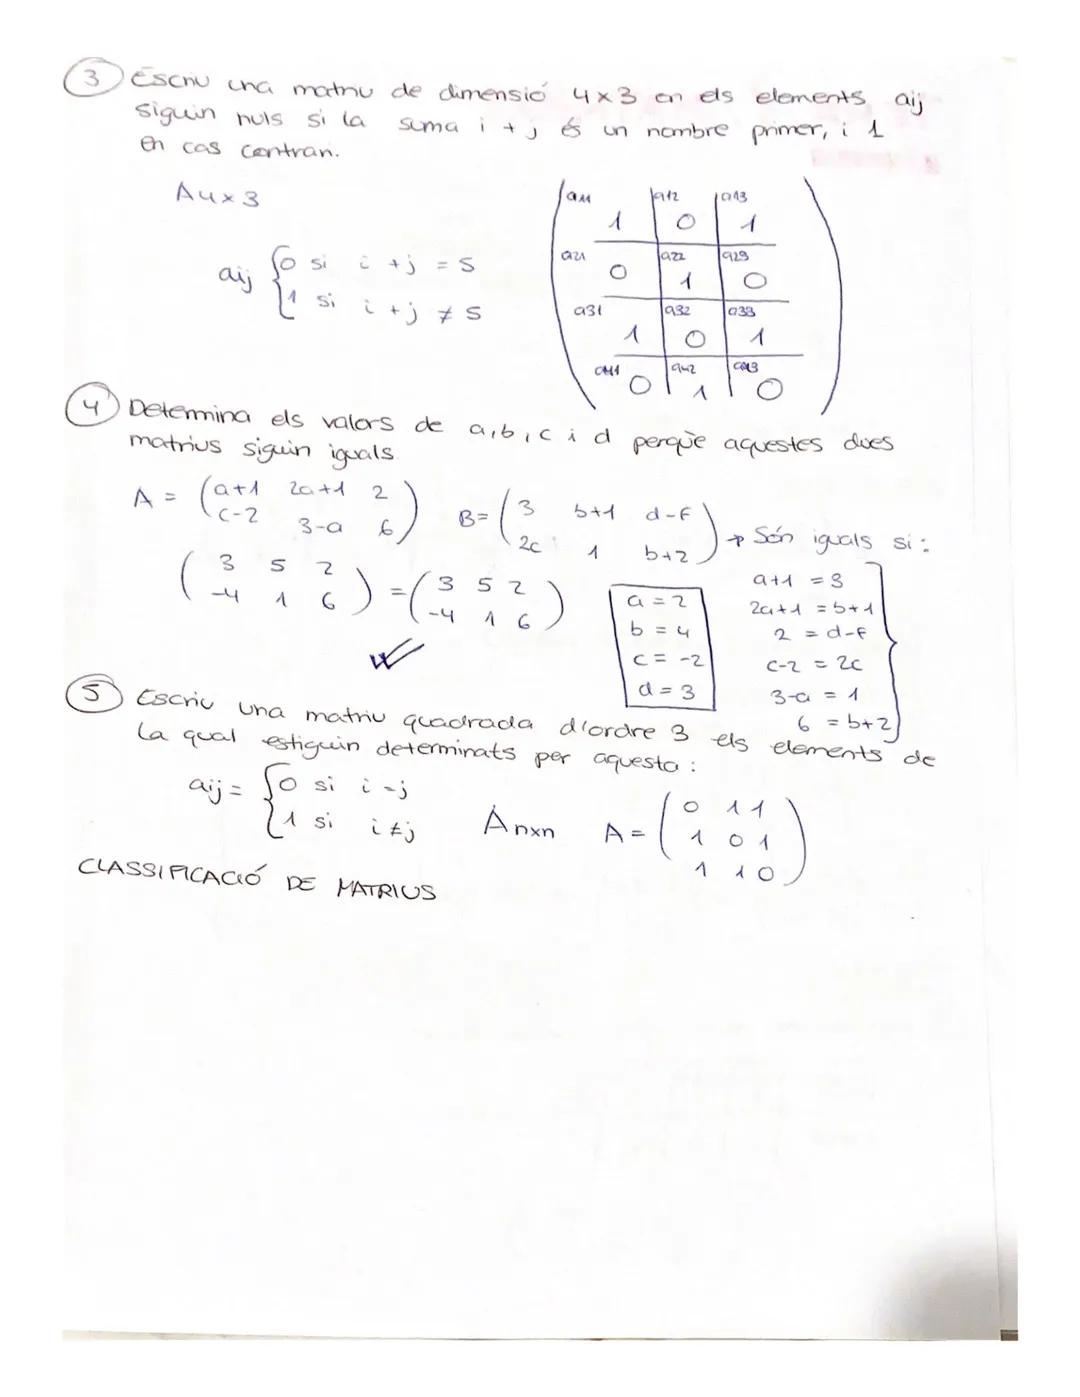 3 Escriu una matriu de dimensió 4x3 en els elements aij
siguin nuls si la suma i + j és un nombre primer, i 1
en cas contrari.
A4x3
aij { 0 si i + j = S
1 si i + j ≠ S
a11 1 a12 0 a13 1
a21 0 a22 1 a23 0
a31 1 a32 0 a33 1
a41 0 a42 1 a43 0
4 Determina els valors de a, b, c i d perquè aquestes dues
matrius siguin iguals
A = ( a+1 2a+1 2
c-2 3-a 6 )
B = ( 3 b+1 d-f
2c 1 b+2 ) → Són iguals si:
( 3 5 2
-4 1 6 ) = ( 3 5 2
-4 1 6 )
a = 2
b = 4
c = -2
d = 3
a+1 = 3
2a+1 = b+1
2 = d-f
c-2 = 2c
3-a = 1
6 = b+2
5 Escriu una matriu quadrada d'ordre 3 els elements de
la qual estiguin determinats per aquesta:
aij = { 0 si i = j
1 si i ≠ j
Anxn A = ( 0 1 1
1 0 1
1 1 0 )
CLASSIFICACIÓ DE MATRIUS